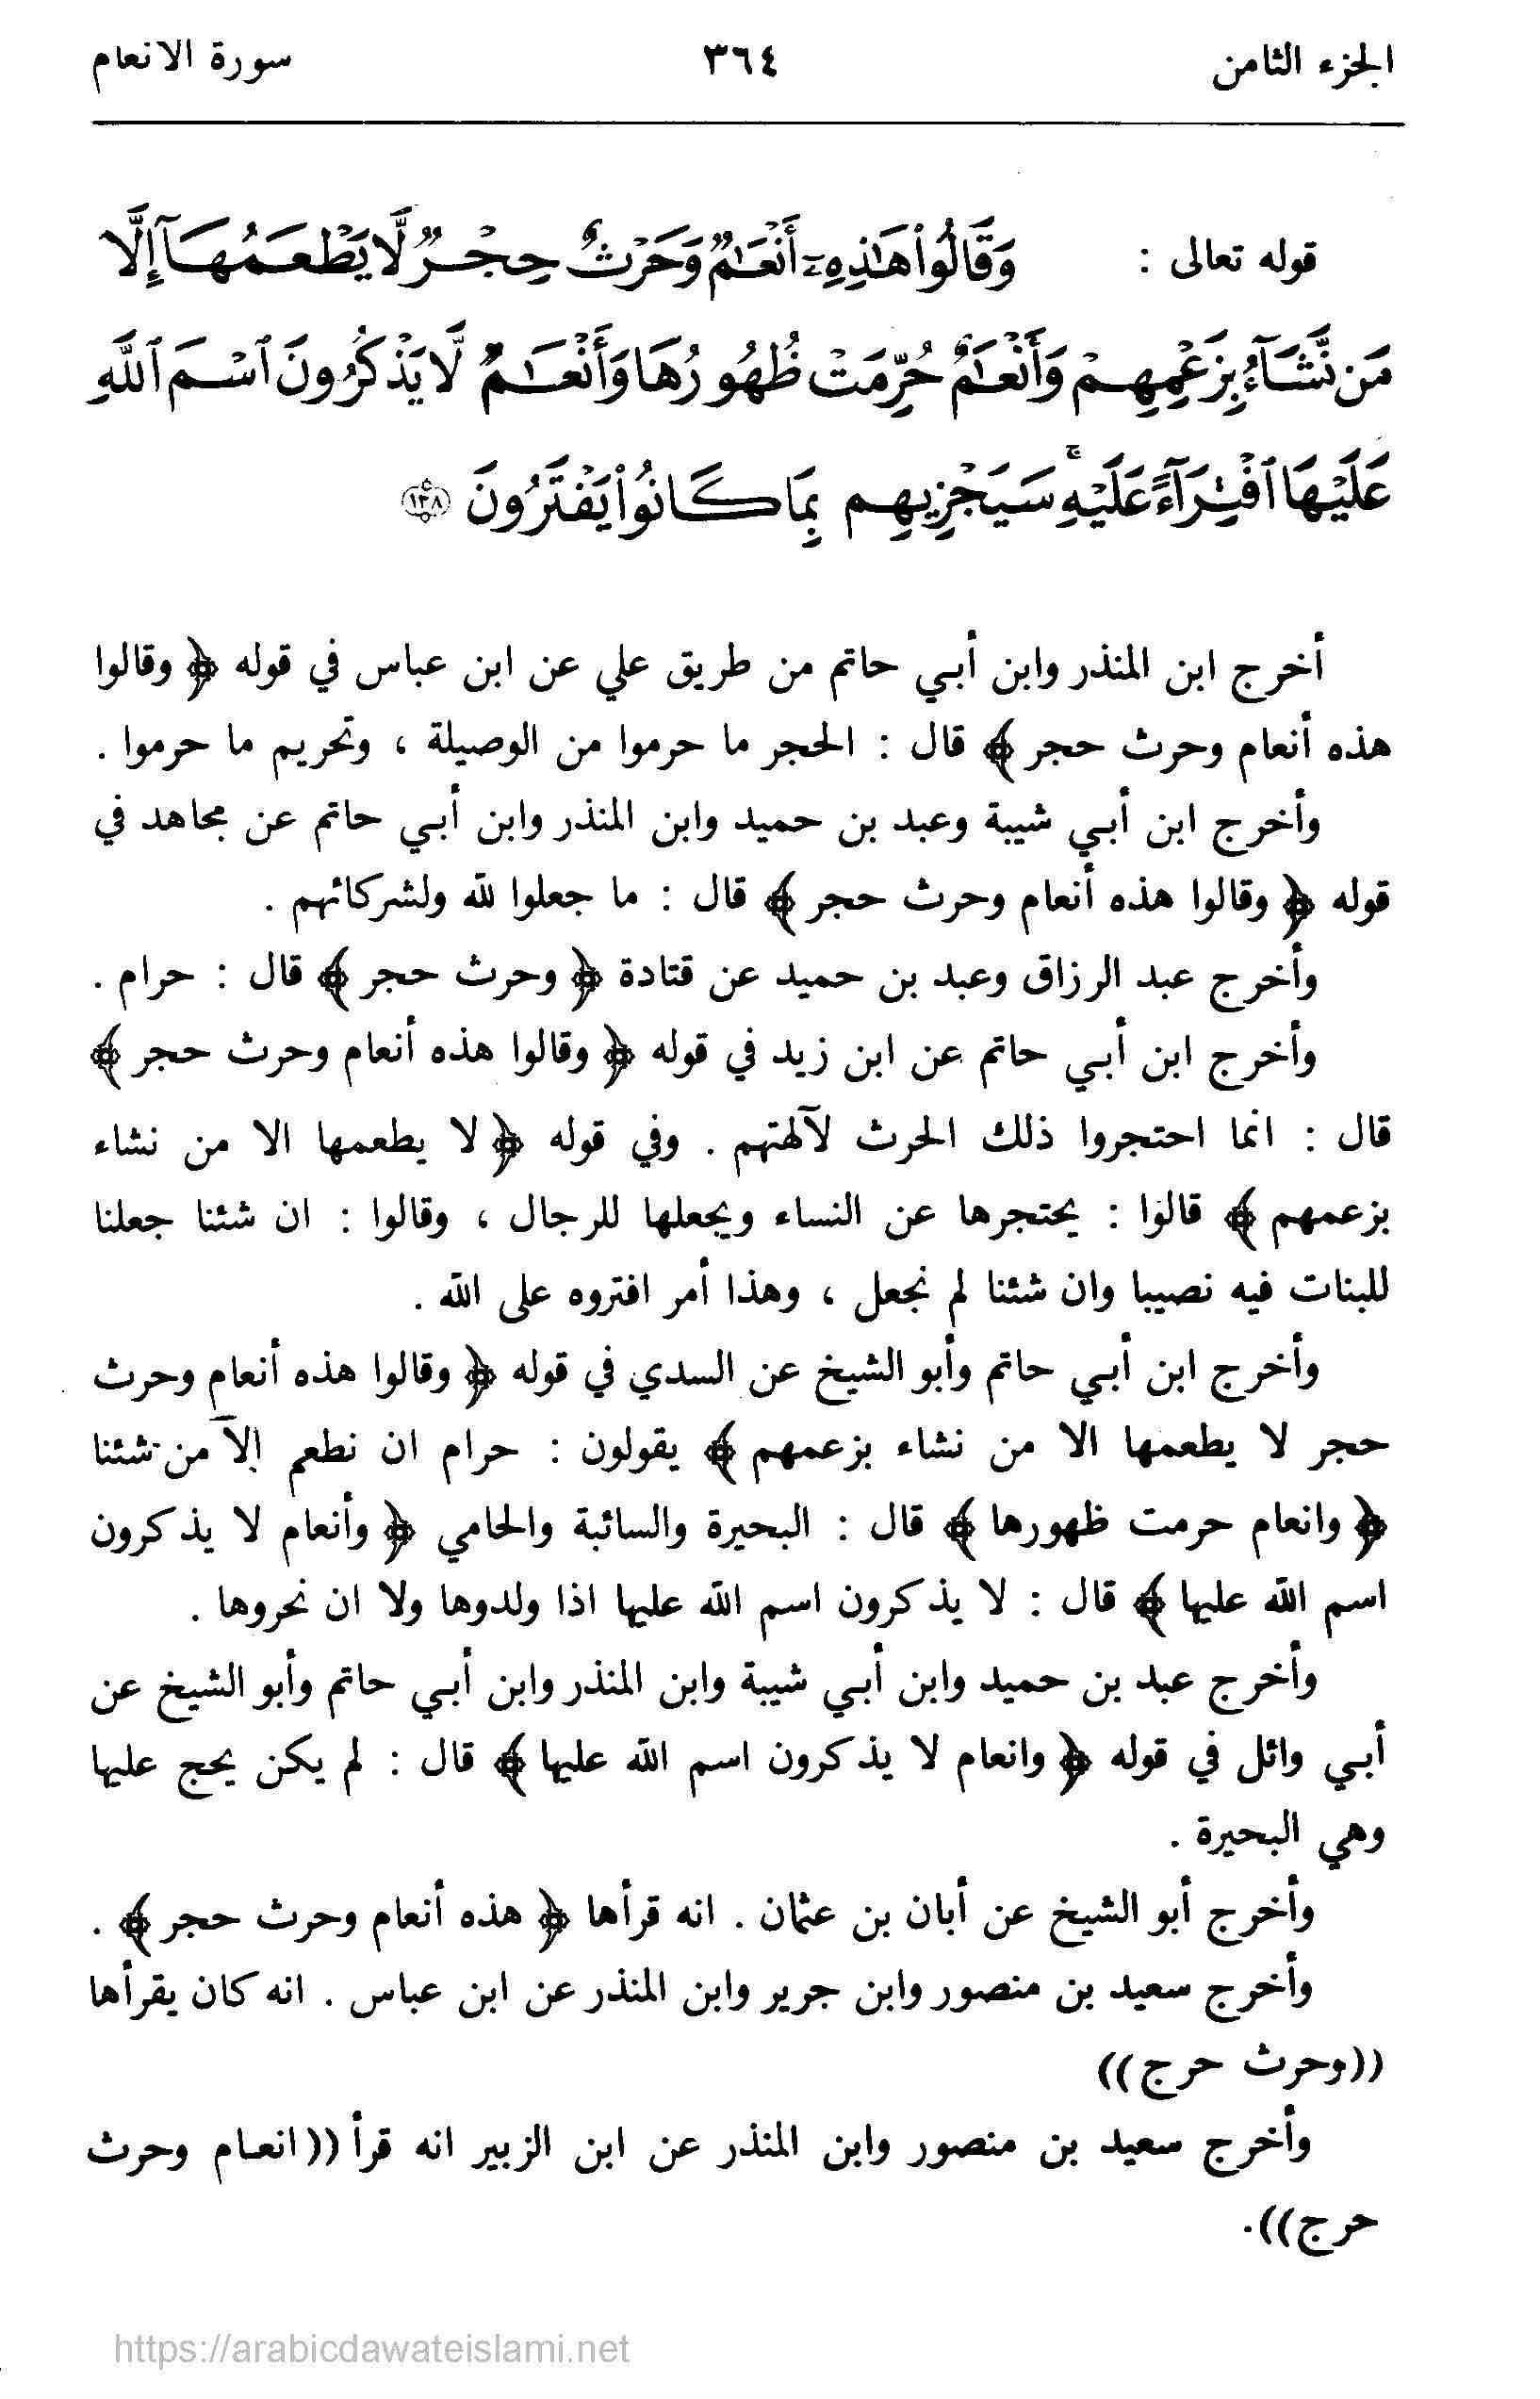 الجزء الثامن ٣٦٤ سورة الانعام
قوله تعالى : وَقَالُوا۟ هَـٰذِهِۦٓ أَنْعَـٰمٌ وَحَرْثٌ حِجْرٌ لَّا يَطْعَمُهَآ إِلَّا
مَن نَّشَآءُ بِزَعْمِهِمْ وَأَنْعَـٰمٌ حُرِّمَتْ ظُهُورُهَا وَأَنْعَـٰمٌ لَّا يَذْكُرُونَ ٱسْمَ ٱللَّهِ
عَلَيْهَا ٱفْتِرَآءً عَلَيْهِ ۚ سَيَجْزِيهِم بِمَا كَانُوا۟ يَفْتَرُونَ ١٣٨
أخرج ابن المنذر وابن أبـي حاتم من طريق علي عن ابن عباس في قوله ﴿ وقالوا
هذه أنعام وحرث حجر ﴾ قال : الحجر ما حرموا من الوصيلة ، وتحريم ما حرموا .
وأخرج ابن أبـي شيبة وعبد بن حميد وابن المنذر وابن أبـي حاتم عن مجاهد في
قوله ﴿ وقالوا هذه أنعام وحرث حجر ﴾ قال : ما جعلوا لله ولشركائهم .
وأخرج عبد الرزاق وعبد بن حميد عن قتادة ﴿ وحرث حجر ﴾ قال : حرام .
وأخرج ابن أبـي حاتم عن ابن زيد في قوله ﴿ وقالوا هذه أنعام وحرث حجر ﴾
قال : انما احتجروا ذلك الحرث لآلهتهم . وفي قوله ﴿ لا يطعمها الا من نشاء
بزعمهم ﴾ قالوا : يحتجرها عن النساء ويجعلها للرجال ، وقالوا : ان شئنا جعلنا
للبنات فيه نصيبا وان شئنا لم نجعل ، وهذا أمر افتروه على الله .
وأخرج ابن أبـي حاتم وأبو الشيخ عن السدي في قوله ﴿ وقالوا هذه أنعام وحرث
حجر لا يطعمها الا من نشاء بزعمهم ﴾ يقولون : حرام ان نطعم إلاّ من شئنا
﴿ وانعام حرمت ظهورها ﴾ قال : البحيرة والسائبة والحامي ﴿ وأنعام لا يذكرون
اسم الله عليها ﴾ قال : لا يذكرون اسم الله عليها اذا ولدوها ولا ان نحروها .
وأخرج عبد بن حميد وابن أبـي شيبة وابن المنذر وابن أبـي حاتم وأبو الشيخ عن
أبـي وائل في قوله ﴿ وانعام لا يذكرون اسم الله عليها ﴾ قال : لم يكن يحج عليها
وهي البحيرة .
وأخرج أبو الشيخ عن أبان بن عثمان . انه قرأها ﴿ هذه أنعام وحرث حجر ﴾ .
وأخرج سعيد بن منصور وابن جرير وابن المنذر عن ابن عباس . انه كان يقرأها
((وحرث حرج))
وأخرج سعيد بن منصور وابن المنذر عن ابن الزبير انه قرأ ((انعـام وحرث
حرج)).
https://arabicdawateislami.net